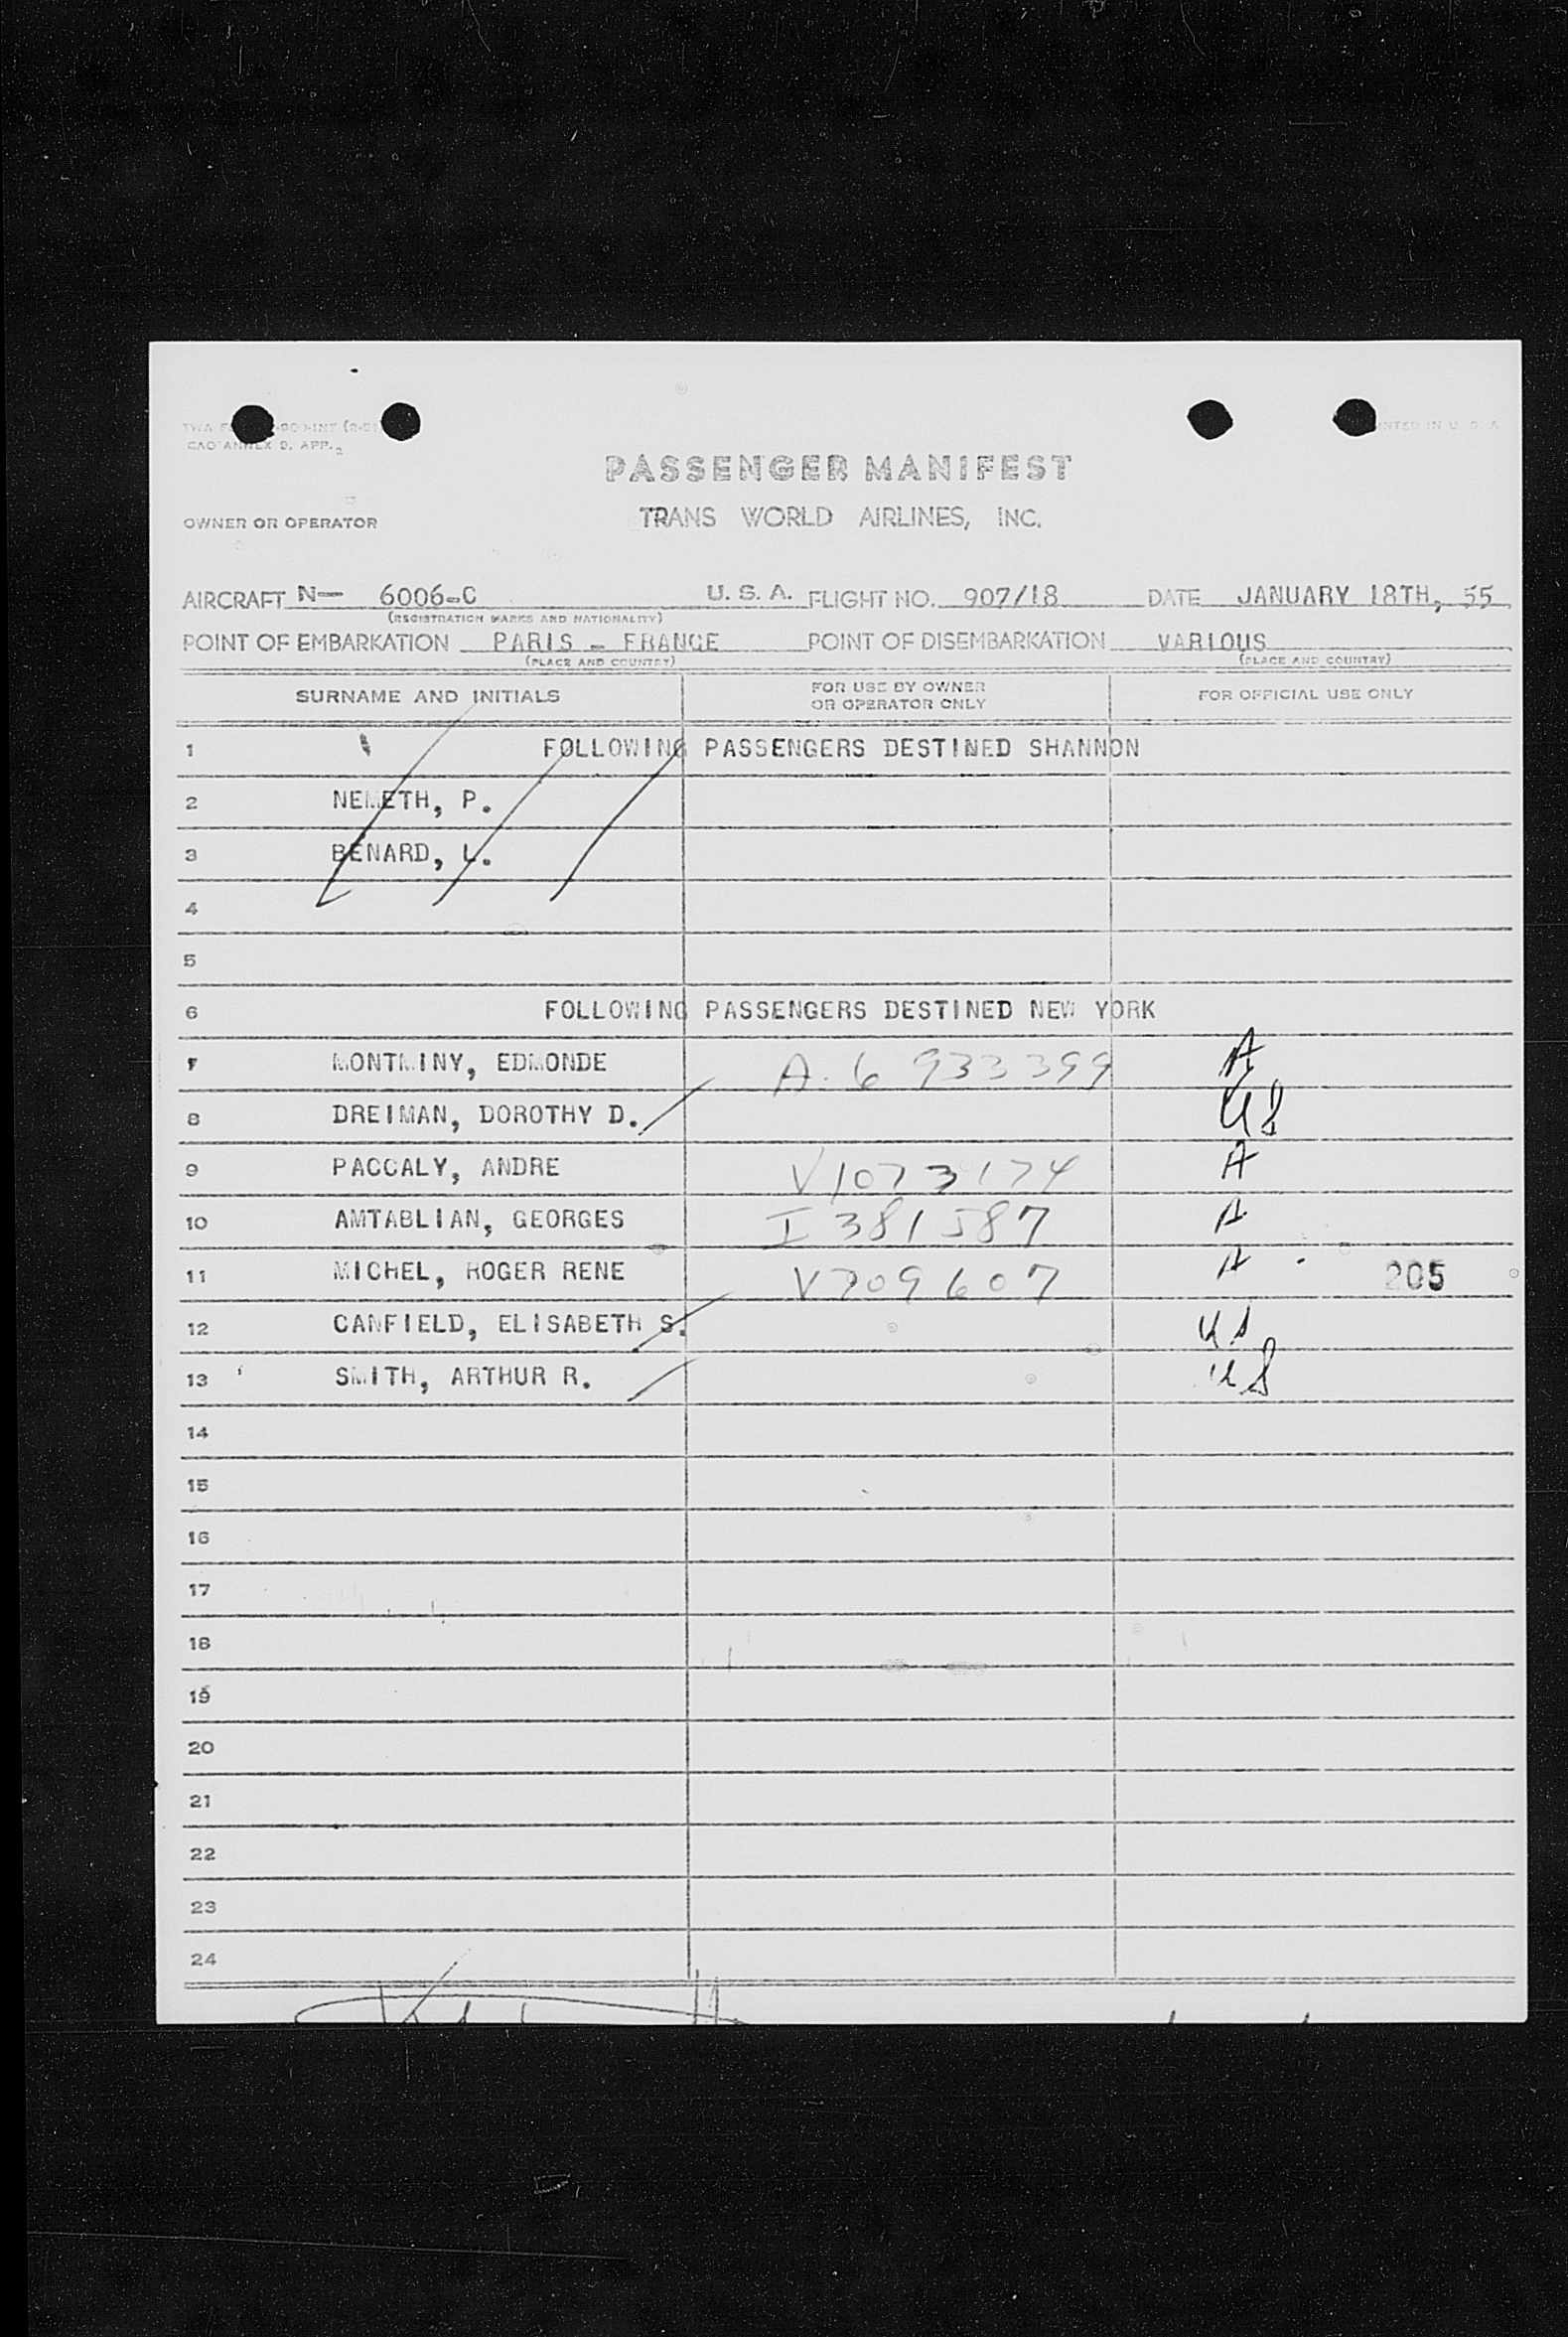 CAO ANNEX D, APP. 2
PASSENGER MANIFEST
OWNER OR OPERATOR TRANS WORLD AIRLINES, INC.
AIRCRAFT N— 6006-C U. S. A. FLIGHT NO. 907/18 DATE JANUARY 18TH, 55
(REGISTRATION MARKS AND NATIONALITY)
POINT OF EMBARKATION PARIS - FRANCE POINT OF DISEMBARKATION VARIOUS
(PLACE AND COUNTRY) (PLACE AND COUNTRY)
SURNAME AND INITIALS FOR USE BY OWNER OR OPERATOR ONLY FOR OFFICIAL USE ONLY
1 FOLLOWING PASSENGERS DESTINED SHANNON
2 NEMETH, P.
3 BENARD, L.
4
5
6 FOLLOWING PASSENGERS DESTINED NEW YORK
7 MONTMINY, EDMONDE A. 6 933399 A
8 DREIMAN, DOROTHY D. US
9 PACCALY, ANDRE V1073174 A
10 AMTABLIAN, GEORGES I 381587 A
11 MICHEL, ROGER RENE V709607 A 205
12 CANFIELD, ELISABETH S. US
13 SMITH, ARTHUR R. US
14
15
16
17
18
19
20
21
22
23
24